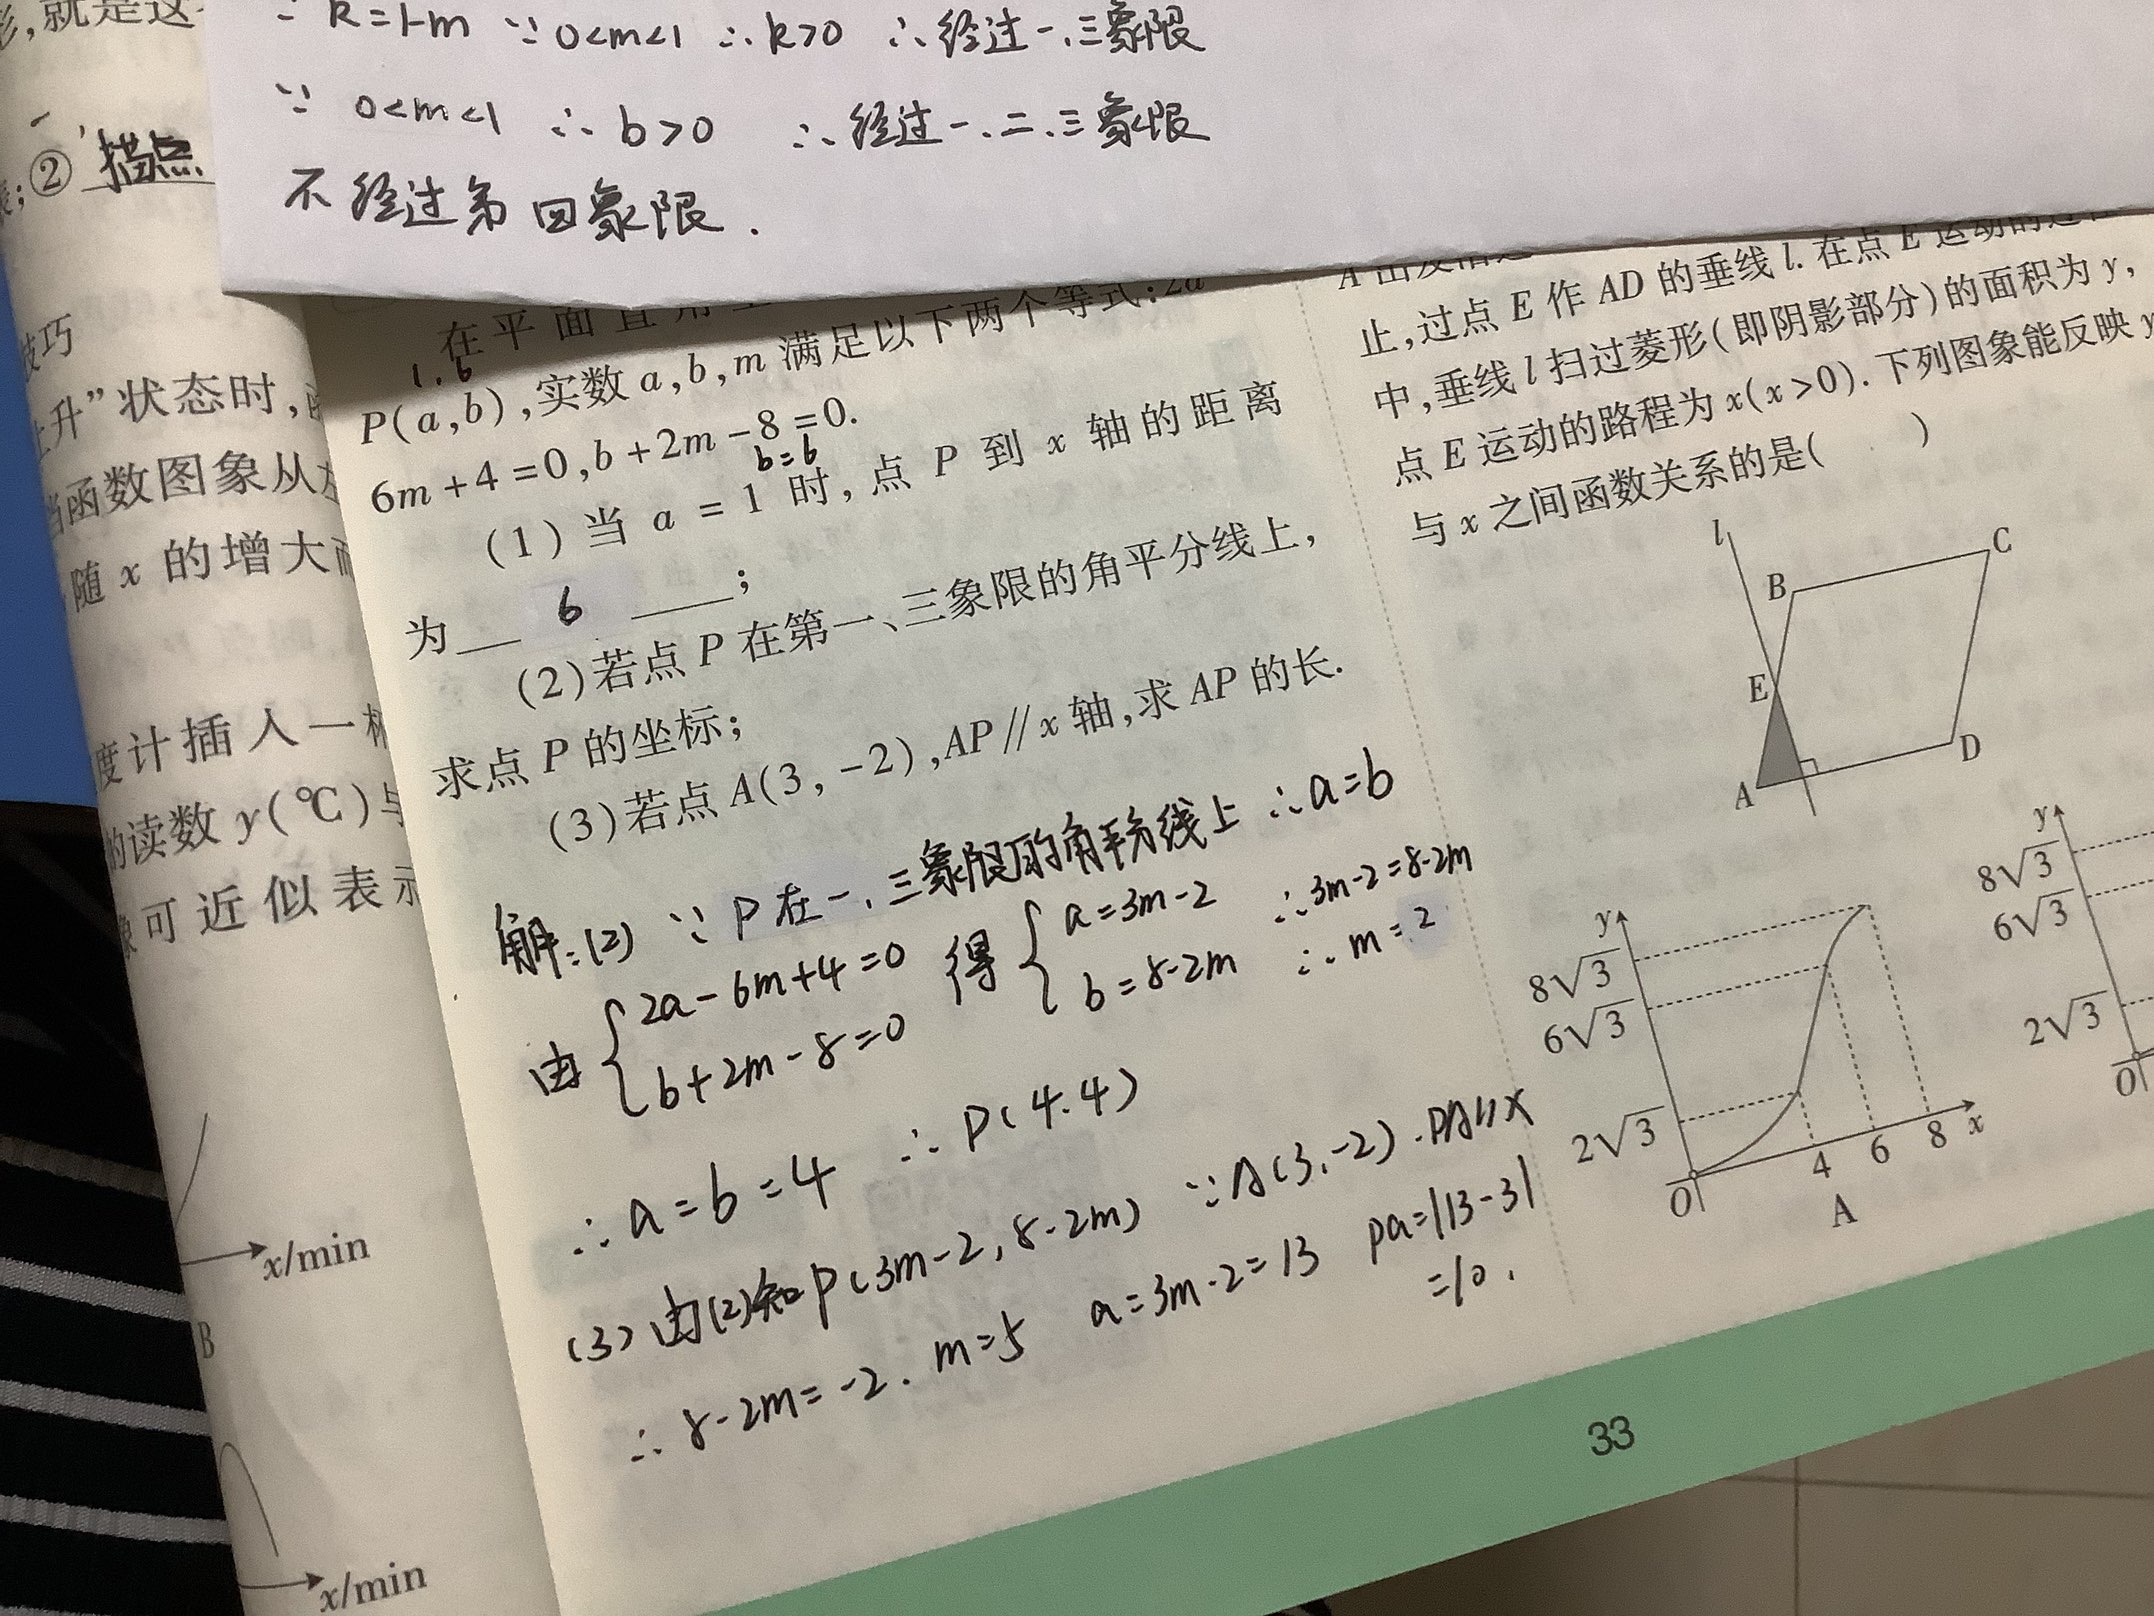 形,就是这
∵ k=1-m ∵ 0<m<1 ∴ k>0 ∴ 经过一.三象限
∵ 0<m<1 ∴ b>0 ∴ 经过一.二.三象限
不经过第四象限.
② 描点
技巧
上升”状态时,
当函数图象从左
随 x 的增大而
度计插入一杯
的读数 y(℃)与
象可近似表示
x/min
B
x/min
在平面直角
满足以下两个等式:2a
1.6
P(a,b),实数 a,b,m
6m+4=0,b+2m-8=0.
b=6
(1)当 a=1 时,点 P 到 x 轴的距离
为 6 ;
(2)若点 P 在第一、三象限的角平分线上,
求点 P 的坐标;
(3)若点 A(3,-2),AP∥x 轴,求 AP 的长.
解:(2) ∵ P在一.三象限的角平分线上 ∴a=b
由{2a-6m+4=0 得{a=3m-2 ∴3m-2=8-2m
b+2m-8=0 b=8-2m ∴m=2
∴a=b=4 ∴P(4.4)
(3)由(2)知P(3m-2,8-2m) ∵A(3,-2).PA∥x
∴8-2m=-2. m=5 a=3m-2=13 pa=|13-3|
=10.
点 E 运动的
止,过点 E 作 AD 的垂线 l. 在点 E
中,垂线 l 扫过菱形(即阴影部分)的面积为 y,
点 E 运动的路程为 x(x>0). 下列图象能反映 y
与 x 之间函数关系的是( )
l
B
C
E
A
D
y
8√3
6√3
2√3
O
4
6
8
x
A
y
8√3
6√3
2√3
O
33